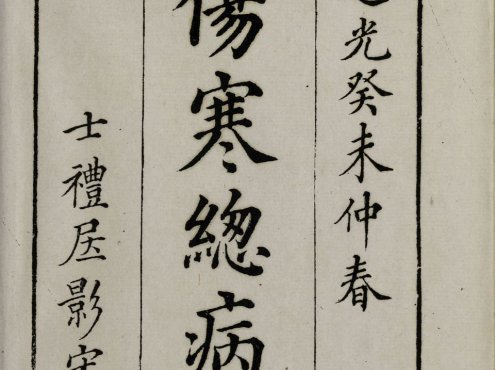 光癸未仲春
傷寒緫病
士禮居影宋